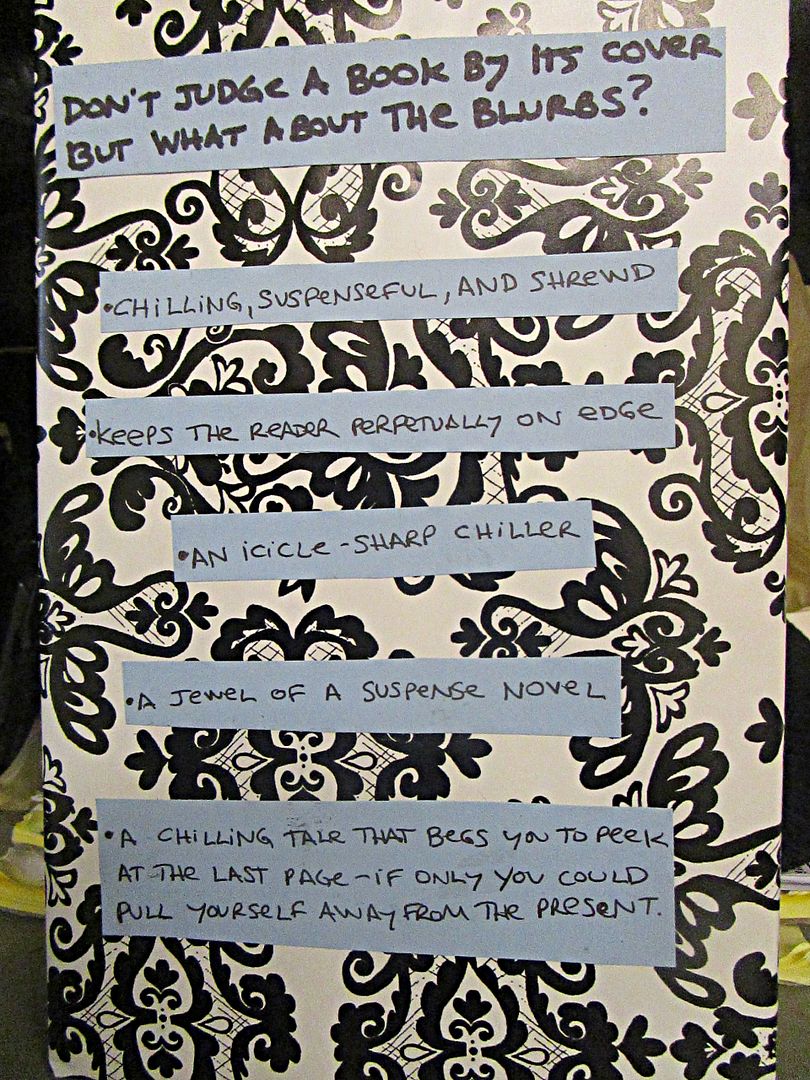 DON'T JUDGE A BOOK BY ITS COVER
BUT WHAT ABOUT THE BLURBS?
•CHILLING, SUSPENSEFUL, AND SHREWD
•KEEPS THE READER PERPETUALLY ON EDGE
•AN ICICLE-SHARP CHILLER
•A JEWEL OF A SUSPENSE NOVEL
•A CHILLING TALE THAT BEGS YOU TO PEEK
AT THE LAST PAGE-IF ONLY YOU COULD
PULL YOURSELF AWAY FROM THE PRESENT.